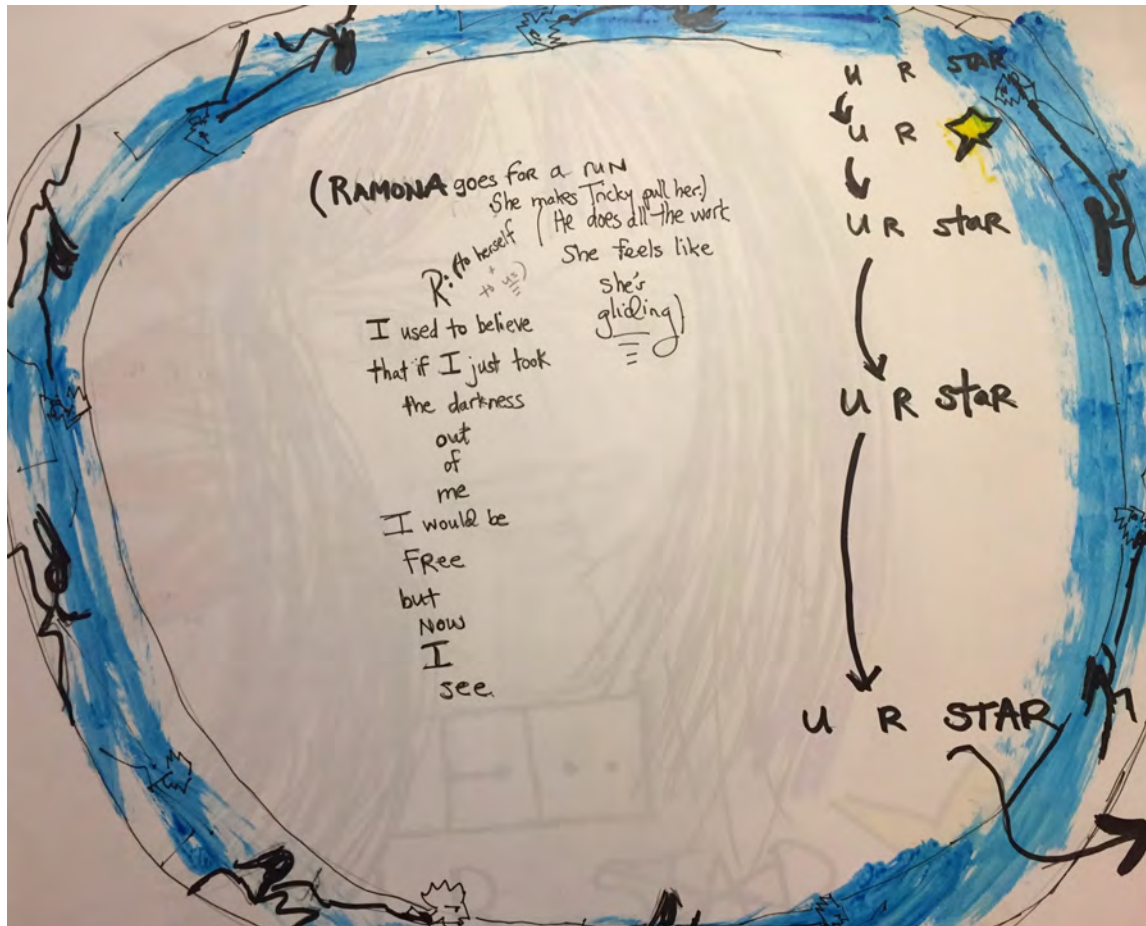 (RAMONA goes FOR a RUN
She makes Tricky pull her.)
(He does all the work
She feels like
she's
gliding)
R: (to herself
+
to us)
I used to believe
that if I just took
the darkness
out
of
me
I would be
FRee
but
NOW
I
see.
U R STAR
U R
U R staR
U R staR
U R STAR